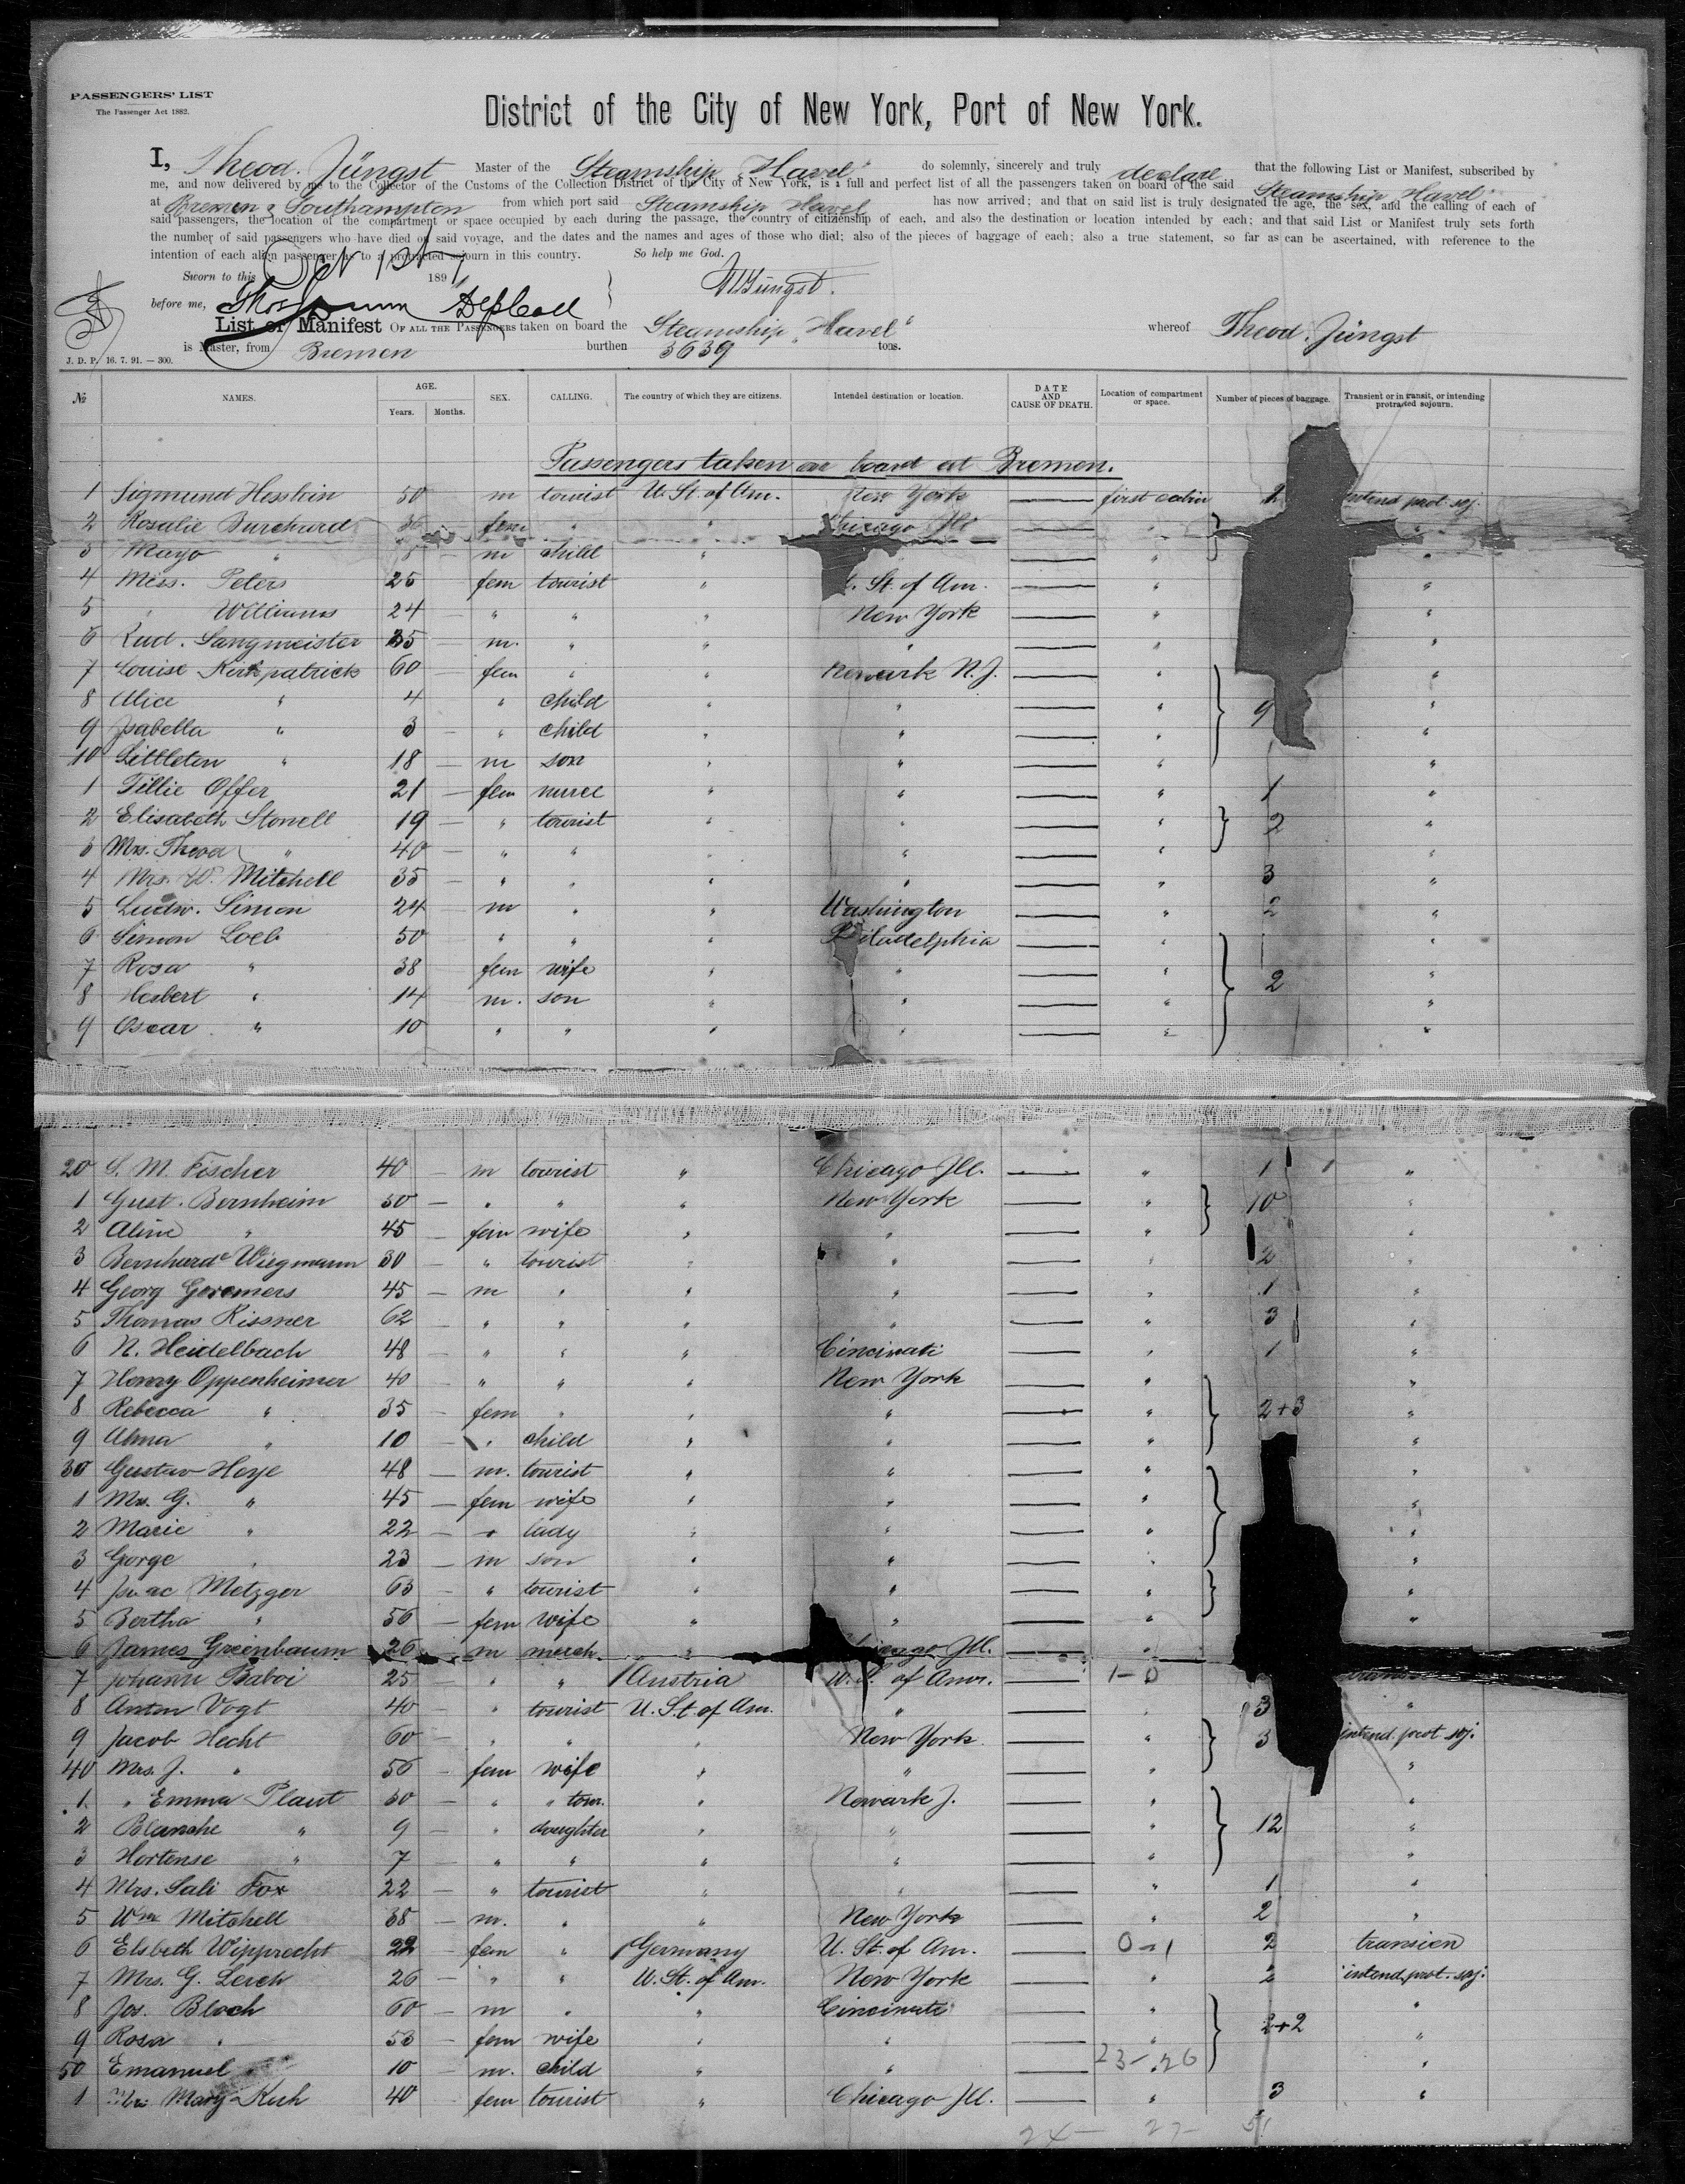 PASSENGERS' LIST
The Passenger Act 1882.
District of the City of New York, Port of New York.
I, Theod. Jüngst Master of the Steamship "Havel" do solemnly, sincerely and truly declare that the following List or Manifest, subscribed by
me, and now delivered by me to the Collector of the Customs of the Collection District of the City of New York, is a full and perfect list of all the passengers taken on board of the said Steamship Havel
at Bremen & Southampton from which port said Steamship Havel has now arrived; and that on said list is truly designated the age, the sex, and the calling of each of
said passengers, the location of the compartment or space occupied by each during the passage, the country of citizenship of each, and also the destination or location intended by each; and that said List or Manifest truly sets forth
the number of said passengers who have died on said voyage, and the dates and the names and ages of those who died; also of the pieces of baggage of each; also a true statement, so far as can be ascertained, with reference to the
intention of each alien passenger as to a protracted sojourn in this country. So help me God.
Sworn to this 189
before me, Jüngst.
List or Manifest OF ALL THE PASSENGERS taken on board the Steamship "Havel" whereof Theod. Jüngst
is Master, from Bremen burthen 3639 tons.
J. D. P. 16. 7. 91. — 300.
№ NAMES. AGE. Years. Months. SEX. CALLING. The country of which they are citizens. Intended destination or location. DATE AND CAUSE OF DEATH. Location of compartment or space. Number of pieces of baggage. Transient or in transit, or intending protracted sojourn.
Passengers taken on board at Bremen.
1 Sigmund Hesslein 50 m tourist U. St. of Am. New York — first cabin 2 intend prot. soj.
2 Rosalie Burchard 36 fem " " Chicago Ill — "
3 Mayo " m child " — " "
4 Miss. Peters 25 fem tourist " St. of Am. — " "
5 " Williams 24 " " " New York — " "
6 Rud. Sangmeister 35 m. " " " — " "
7 Louise Kirkpatrick 60 fem " " Newark N. J. — " "
8 Alice " 4 " child " " — " 9 "
9 Isabella " 3 " child " " — " "
10 Littleton " 18 m son " " — " "
1 Tillie Offer 21 fem nurse " " — " 1 "
2 Elisabeth Stonell 19 " tourist " " — " 2 "
3 Mrs. Theod " 40 " " " " — " "
4 Mrs. W. Mitchell 35 " " " " — " 3 "
5 Ludw. Simon 24 m " " Washington — " 2 "
6 Simon Loeb 50 " " " Philadelphia — " "
7 Rosa " 38 fem wife " " — " 2 "
8 Herbert " 14 m. son " " — " "
9 Oscar " 10 " " " " — " "
20 S. M. Fischer 40 m tourist " Chicago Ill. — " 1 "
1 Gust. Bernheim 50 " " " New York — " 10 "
2 Aline " 45 fem wife " " — " "
3 Bernharde Wiegmann 30 " tourist " " — " 2 "
4 Georg Geromers 45 m " " " — " 1 "
5 Thomas Rissner 62 " " " " — " 3 "
6 N. Heidelbach 48 " " " Cincinati — " 1 "
7 Henry Oppenheimer 40 " " " New York — " "
8 Rebecca " 35 fem " " " — " 2+3 "
9 Alma " 10 " child " " — " "
30 Gustav Hoye 48 m. tourist " " — " "
1 Mrs. G. " 45 fem wife " " — " "
2 Marie " 22 " lady " " — " "
3 Gorge " 23 m son " " — " "
4 Isaac Metzger 63 " tourist " " — " "
5 Bertha " 56 fem wife " " — " "
6 James Greenbaum 26 m merch. " Chicago Ill. — "
7 Johann Baboi 25 " " Austria U. S. of Amr. — 1-0
8 Anton Vogt 40 " tourist U. St. of Am. " — " 3 "
9 Jacob Hecht 60 " " " New York — " 3 intend. prot. soj.
40 Mrs. J. " 56 fem wife " " — " "
1 " Emma Plaut 30 " " tour. " Newark J. — " "
2 Blanche " 9 " daughter " " — " 12 "
3 Hortense " 7 " " " " — " "
4 Mrs. Sali Fox 22 " tourist " " — " 1 "
5 Wm Mitchell 38 m. " " New York — " 2 "
6 Elsbeth Wipprecht 22 fem " Germany U. St. of Am. — 0-1 2 transien
7 Mrs. G. Lerch 26 " " U. St. of Am. New York — " 2 intend prot. soj.
8 Jos. Bloch 60 m " " Cincinati — " "
9 Rosa " 53 fem wife " " — " 2+2 "
50 Emanuel " 10 m. child " " — 23-26 "
1 Mrs Mary Kuh 40 fem tourist " Chicago Ill. — " 3 "
24 — 27 — 51